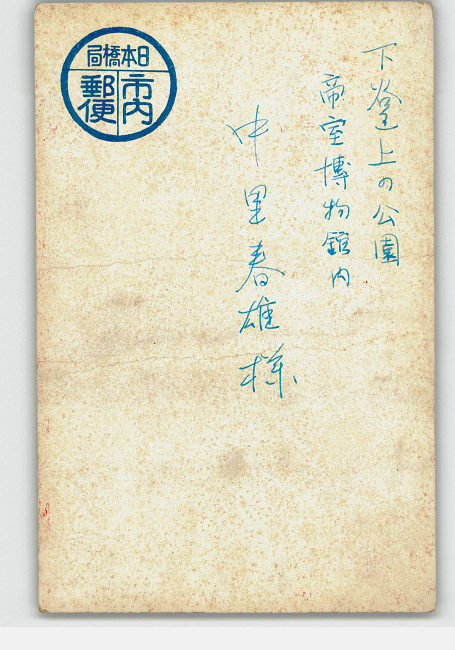 下谷上の公園
帝室博物館内
中里春雄様
日本橋局
市内
郵便